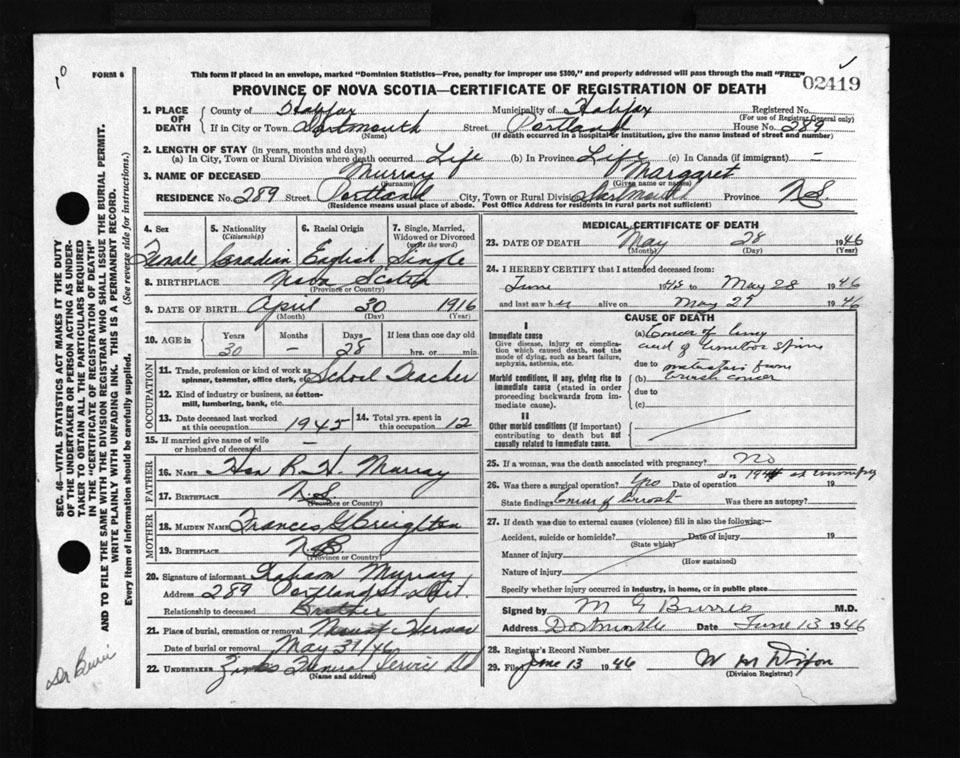 FORM 6
This form if placed in an envelope, marked "Dominion Statistics—Free, penalty for improper use $300," and properly addressed will pass through the mail "FREE"
02419
PROVINCE OF NOVA SCOTIA—CERTIFICATE OF REGISTRATION OF DEATH
1. PLACE OF DEATH
County of Halifax Municipality of Halifax Registered No.
(For use of Registrar General only)
If in City or Town Dartmouth Street Portland House No. 289
(Name) (If death occurred in a hospital or institution, give the name instead of street and number)
2. LENGTH OF STAY (in years, months and days)
(a) In City, Town or Rural Division where death occurred Life (b) In Province Life (c) In Canada (if immigrant) —
3. NAME OF DECEASED Murray Margaret
(Surname) (Given name or names)
RESIDENCE No. 289 Street Portland City, Town or Rural Division Dartmouth Province N.S.
(Residence means usual place of abode. Post Office Address for residents in rural parts not sufficient)
4. Sex 5. Nationality (Citizenship) 6. Racial Origin 7. Single, Married, Widowed or Divorced (write the word)
Female Canadian English Single
8. BIRTHPLACE Nova Scotia
(Province or Country)
9. DATE OF BIRTH April 30 1916
(Month) (Day) (Year)
10. AGE in Years Months Days If less than one day old
30 — 28 hrs. or min.
OCCUPATION
11. Trade, profession or kind of work as spinner, teamster, office clerk, etc. School Teacher
12. Kind of industry or business, as cotton-mill, lumbering, bank, etc.
13. Date deceased last worked at this occupation 1945 14. Total yrs. spent in this occupation 12
15. If married give name of wife or husband of deceased —
FATHER
16. NAME Hon R. H. Murray
17. BIRTHPLACE N.S
(Province or Country)
MOTHER
18. MAIDEN NAME Frances G Creighton
19. BIRTHPLACE N.S
(Province or Country)
20. Signature of informant Murray
Address 289 Portland St. Dart.
Relationship to deceased Brother
21. Place of burial, cremation or removal Mount Herman
Date of burial or removal May 31/46
22. UNDERTAKER Funeral Service Ltd
(Name and address)
MEDICAL CERTIFICATE OF DEATH
23. DATE OF DEATH May 28 1946
(Month) (Day)
24. I HEREBY CERTIFY that I attended deceased from:
June 1945 to May 28 1946
and last saw her alive on May 27 1946
CAUSE OF DEATH
I
Immediate cause
Give disease, injury or complication which caused death, not the mode of dying, such as heart failure, asphyxia, asthenia, etc.
(a) Cancer of lung
and of lumbar spine
due to metastasis from
Morbid conditions, if any, giving rise to immediate cause (stated in order proceeding backwards from immediate cause).
(b) breast cancer
due to
(c)
II
Other morbid conditions (if important) contributing to death but not causally related to immediate cause.
25. If a woman, was the death associated with pregnancy? No
26. Was there a surgical operation? Yes Date of operation 19
State findings Cancer of breast Was there an autopsy?
27. If death was due to external causes (violence) fill in also the following:—
Accident, suicide or homicide? Date of injury 19
(State which)
Manner of injury
(How sustained)
Nature of injury
Specify whether injury occurred in industry, in home, or in public place
Signed by M G Burris M.D.
Address Dartmouth Date June 13 1946
28. Registrar's Record Number
29. Filed June 13 1946 W M Dixon
(Division Registrar)
SEC. 46—VITAL STATISTICS ACT MAKES IT THE DUTY OF THE UNDERTAKER OR PERSON ACTING AS UNDERTAKER TO OBTAIN ALL THE PARTICULARS REQUIRED IN THE "CERTIFICATE OF REGISTRATION OF DEATH" AND TO FILE THE SAME WITH THE DIVISION REGISTRAR WHO SHALL ISSUE THE BURIAL PERMIT.
WRITE PLAINLY WITH UNFADING INK. THIS IS A PERMANENT RECORD.
Every item of information should be carefully supplied. (See reverse side for instructions.)